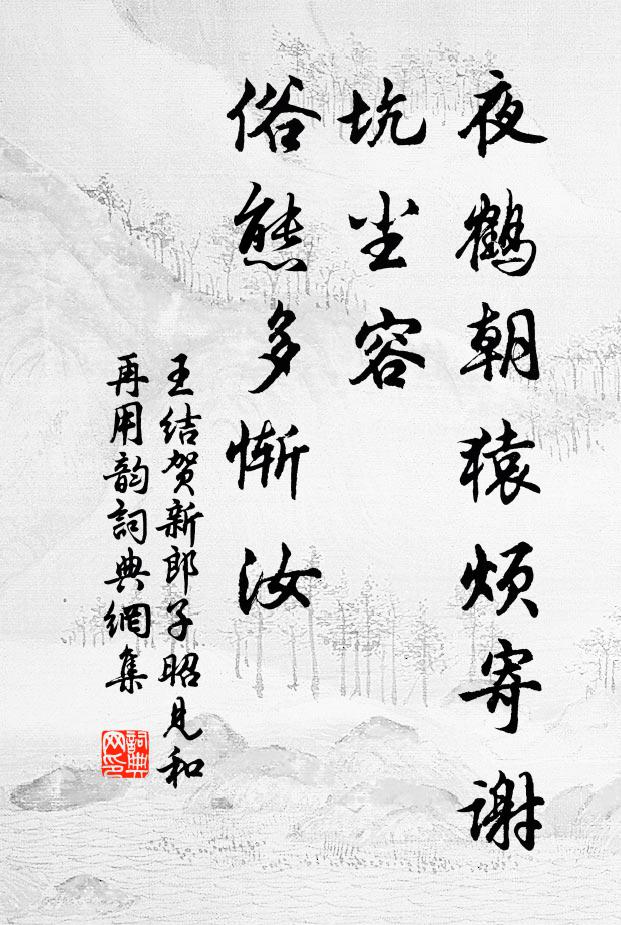 夜鹤朝猿烦寄谢
坑尘容
俗態多惭汝
王结贺新郎子昭见和
再用韵詞典網集
詞典网印